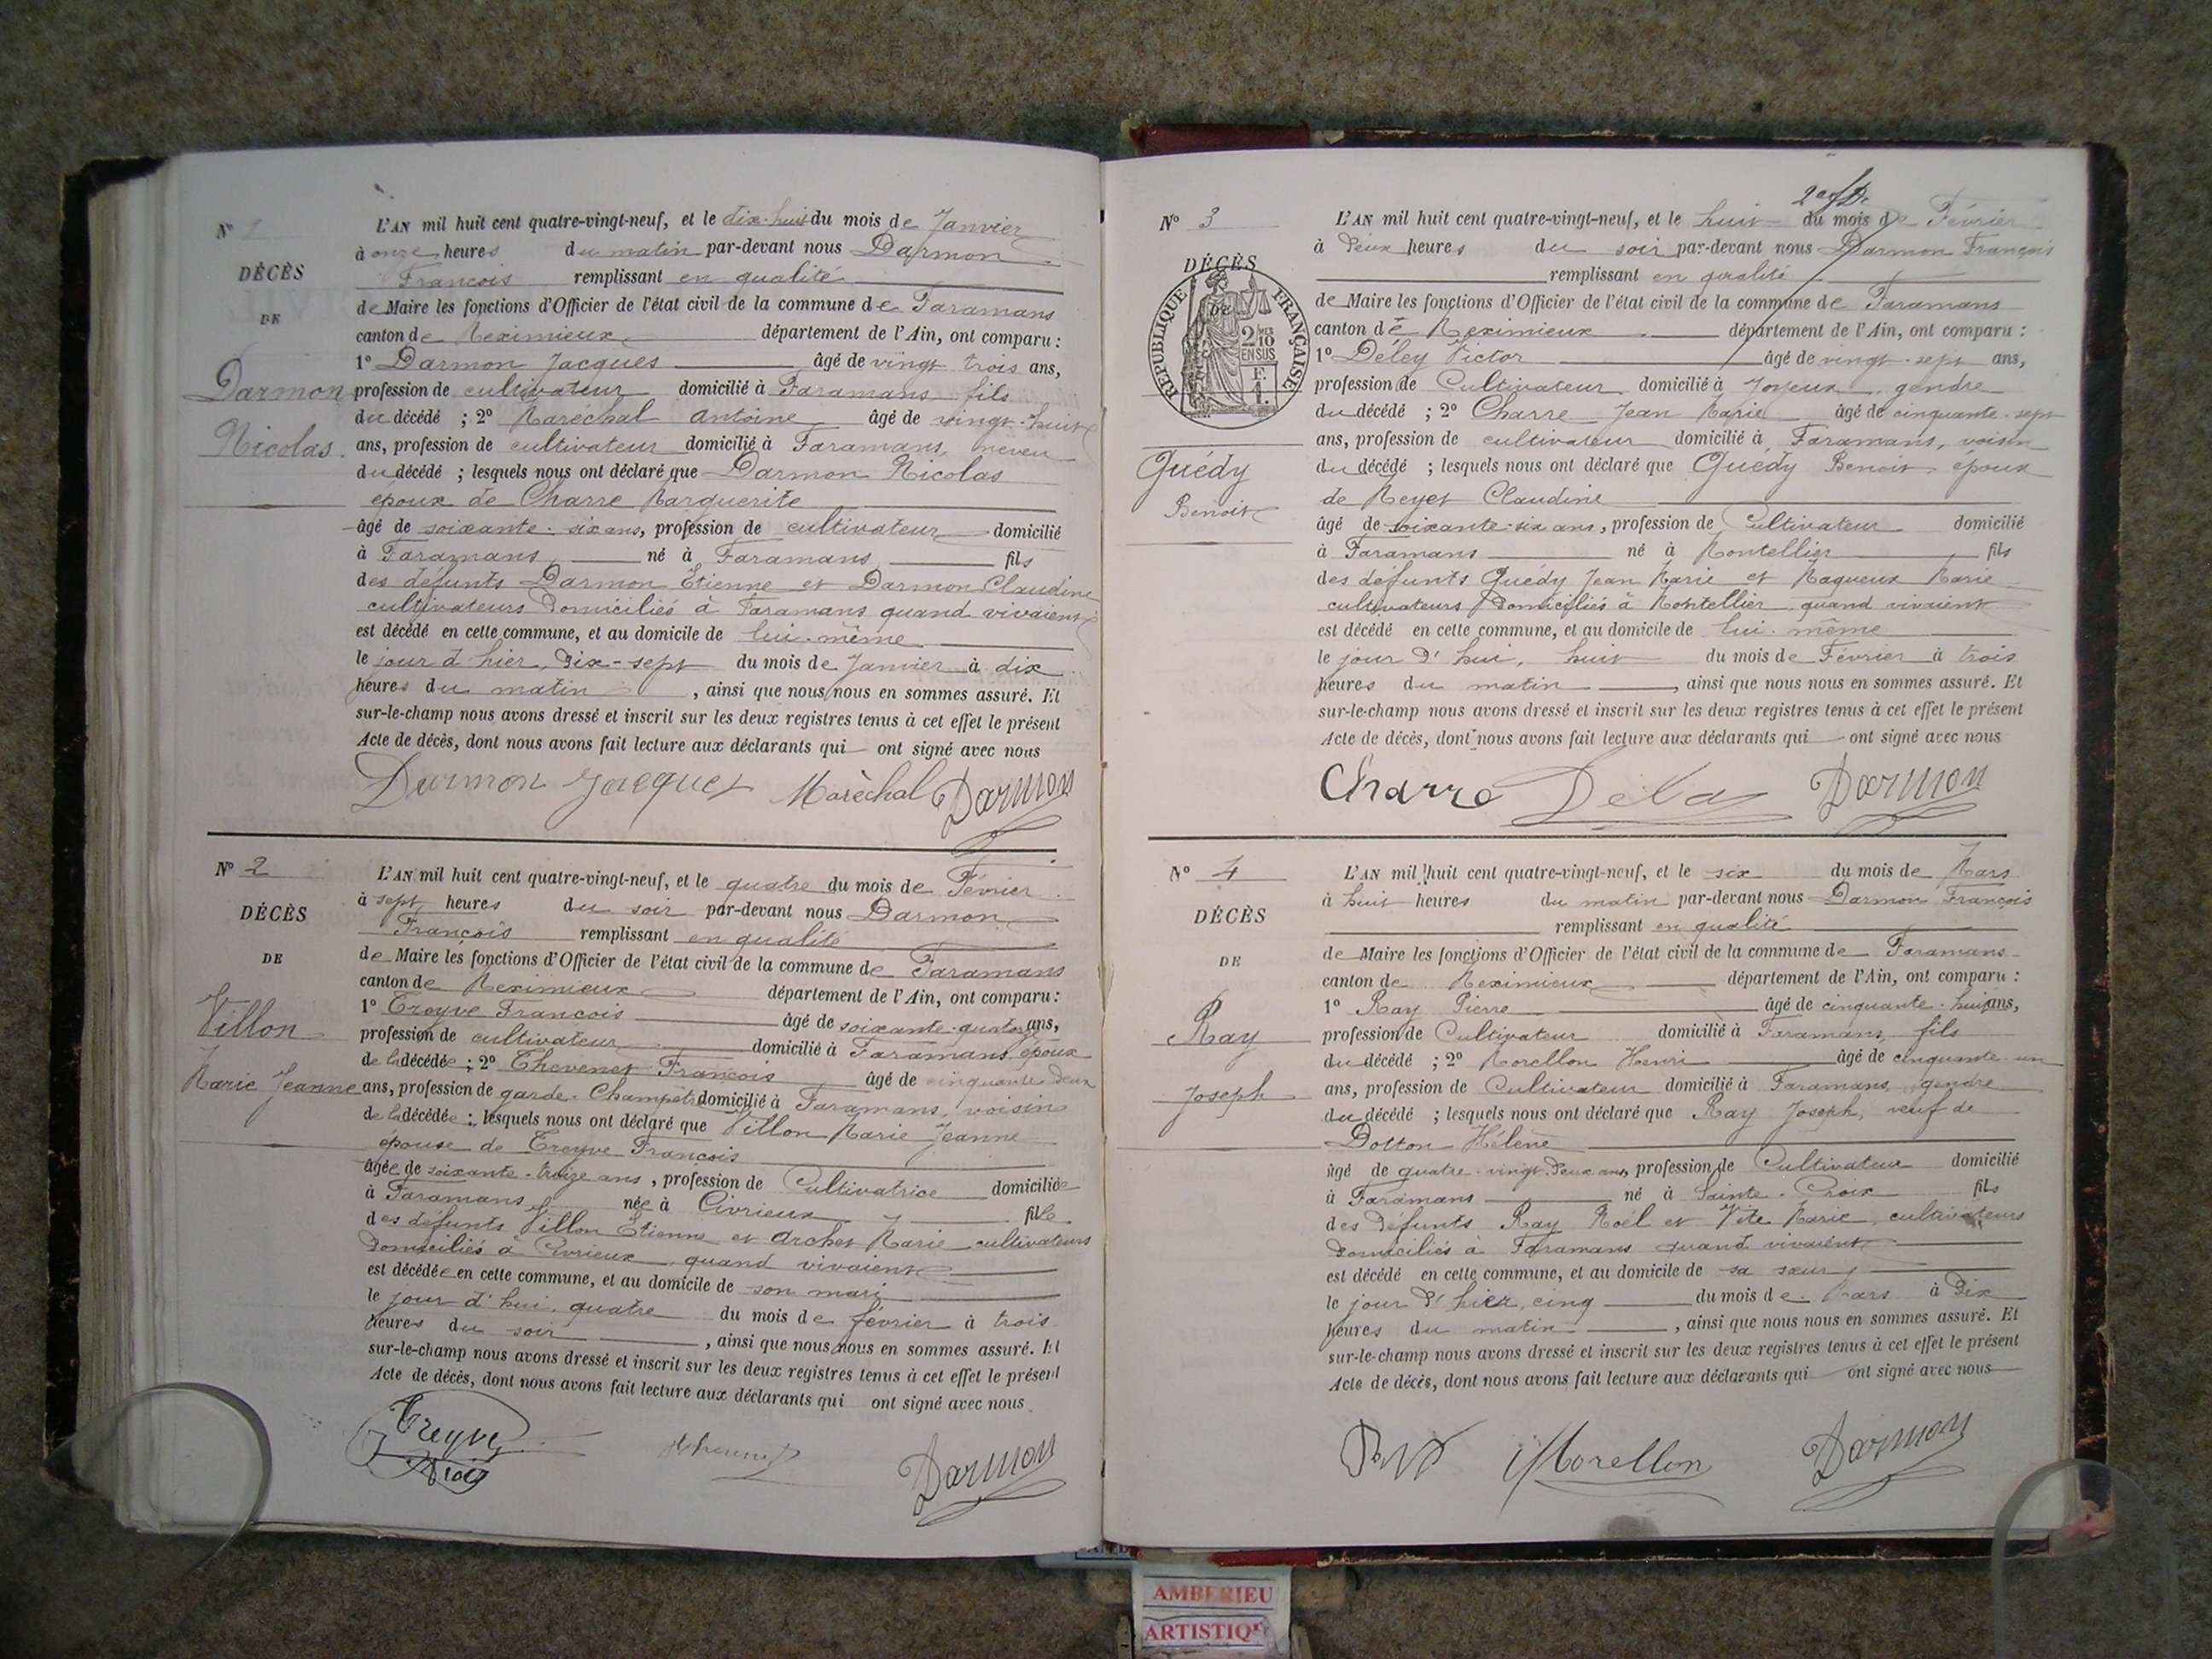 N° 1
DÉCÈS
DE
Darmon
Nicolas.
L'AN mil huit cent quatre-vingt-neuf, et le dix-huit du mois de Janvier
à onze heures du matin par-devant nous Darmon
François remplissant en qualité
de Maire les fonctions d'Officier de l'état civil de la commune de Faramans
canton de Meximieux département de l'Ain, ont comparu :
1° Darmon Jacques âgé de vingt trois ans,
profession de cultivateur domicilié à Faramans fils
du décédé ; 2° Maréchal Antoine âgé de vingt-huit
ans, profession de cultivateur domicilié à Faramans, neveu
du décédé ; lesquels nous ont déclaré que Darmon Nicolas
époux de Charre Marguerite
âgé de soixante-six ans, profession de cultivateur domicilié
à Faramans né à Faramans fils
des défunts Darmon Etienne et Darmon Claudine
cultivateurs domiciliés à Faramans quand vivaient
est décédé en cette commune, et au domicile de lui-même
le jour d'hier, dix-sept du mois de Janvier à dix
heures du matin , ainsi que nous nous en sommes assuré. Et
sur-le-champ nous avons dressé et inscrit sur les deux registres tenus à cet effet le présent
Acte de décès, dont nous avons fait lecture aux déclarants qui ont signé avec nous
Darmon Jacques Maréchal Darmon
N° 2
DÉCÈS
DE
Villon
Marie Jeanne
L'AN mil huit cent quatre-vingt-neuf, et le quatre du mois de Février
à sept heures du soir par-devant nous Darmon
François remplissant en qualité
de Maire les fonctions d'Officier de l'état civil de la commune de Faramans
canton de Meximieux département de l'Ain, ont comparu :
1° Treyve François âgé de soixante-quatorze ans,
profession de cultivateur domicilié à Faramans époux
de la décédée ; 2° Thevenet François âgé de cinquante deux
ans, profession de garde-Champêtre domicilié à Faramans, voisin
de la décédée ; lesquels nous ont déclaré que Villon Marie Jeanne
épouse de Treyve François
âgée de soixante-treize ans, profession de Cultivatrice domiciliée
à Faramans née à Civrieux fille
des défunts Villon Etienne et Archet Marie cultivateurs
domiciliés à Civrieux quand vivaient
est décédée en cette commune, et au domicile de son mari
le jour d'hui, quatre du mois de février à trois
heures du soir , ainsi que nous nous en sommes assuré. Et
sur-le-champ nous avons dressé et inscrit sur les deux registres tenus à cet effet le présent
Acte de décès, dont nous avons fait lecture aux déclarants qui ont signé avec nous
Treyve Darmon
N° 3
DÉCÈS
DE
RÉPUBLIQUE FRANÇAISE
2/10
EN SUS
Quédy
Benoit
L'AN mil huit cent quatre-vingt-neuf, et le huit du mois de Février
à deux heures du soir par-devant nous Darmon François
remplissant en qualité
de Maire les fonctions d'Officier de l'état civil de la commune de Faramans
canton de Meximieux département de l'Ain, ont comparu :
1° Déley Victor âgé de vingt-sept ans,
profession de Cultivateur domicilié à Joyeux, gendre
du décédé ; 2° Charre Jean Marie âgé de cinquante-sept
ans, profession de cultivateur domicilié à Faramans, voisin
du décédé ; lesquels nous ont déclaré que Quédy Benoit, époux
de Meyet Claudine
âgé de soixante-six ans, profession de Cultivateur domicilié
à Faramans né à Montellier fils
des défunts Quédy Jean Marie et Magueux Marie
cultivateurs domiciliés à Montellier quand vivaient
est décédé en cette commune, et au domicile de lui-même
le jour d'hui, huit du mois de Février à trois
heures du matin , ainsi que nous nous en sommes assuré. Et
sur-le-champ nous avons dressé et inscrit sur les deux registres tenus à cet effet le présent
Acte de décès, dont nous avons fait lecture aux déclarants qui ont signé avec nous
Charre Darmon
N° 4
DÉCÈS
DE
Ray
Joseph
L'AN mil huit cent quatre-vingt-neuf, et le six du mois de Mars
à huit heures du matin par-devant nous Darmon François
remplissant en qualité
de Maire les fonctions d'Officier de l'état civil de la commune de Faramans
canton de Meximieux département de l'Ain, ont comparu :
1° Ray Pierre âgé de cinquante-huit ans,
profession de Cultivateur domicilié à Faramans, fils
du décédé ; 2° Morellon Henri âgé de cinquante-un
ans, profession de Cultivateur domicilié à Faramans, gendre
du décédé ; lesquels nous ont déclaré que Ray Joseph, veuf de
Dotton Hélène
âgé de quatre-vingt-deux ans, profession de Cultivateur domicilié
à Faramans né à Sainte-Croix fils
des défunts Ray Noël et Vite Marie, cultivateurs
domiciliés à Faramans quand vivaient
est décédé en cette commune, et au domicile de sa sœur
le jour d'hier, cinq du mois de Mars à dix
heures du matin , ainsi que nous nous en sommes assuré. Et
sur-le-champ nous avons dressé et inscrit sur les deux registres tenus à cet effet le présent
Acte de décès, dont nous avons fait lecture aux déclarants qui ont signé avec nous
Morellon Darmon
AMBERIEU
ARTISTIQUE